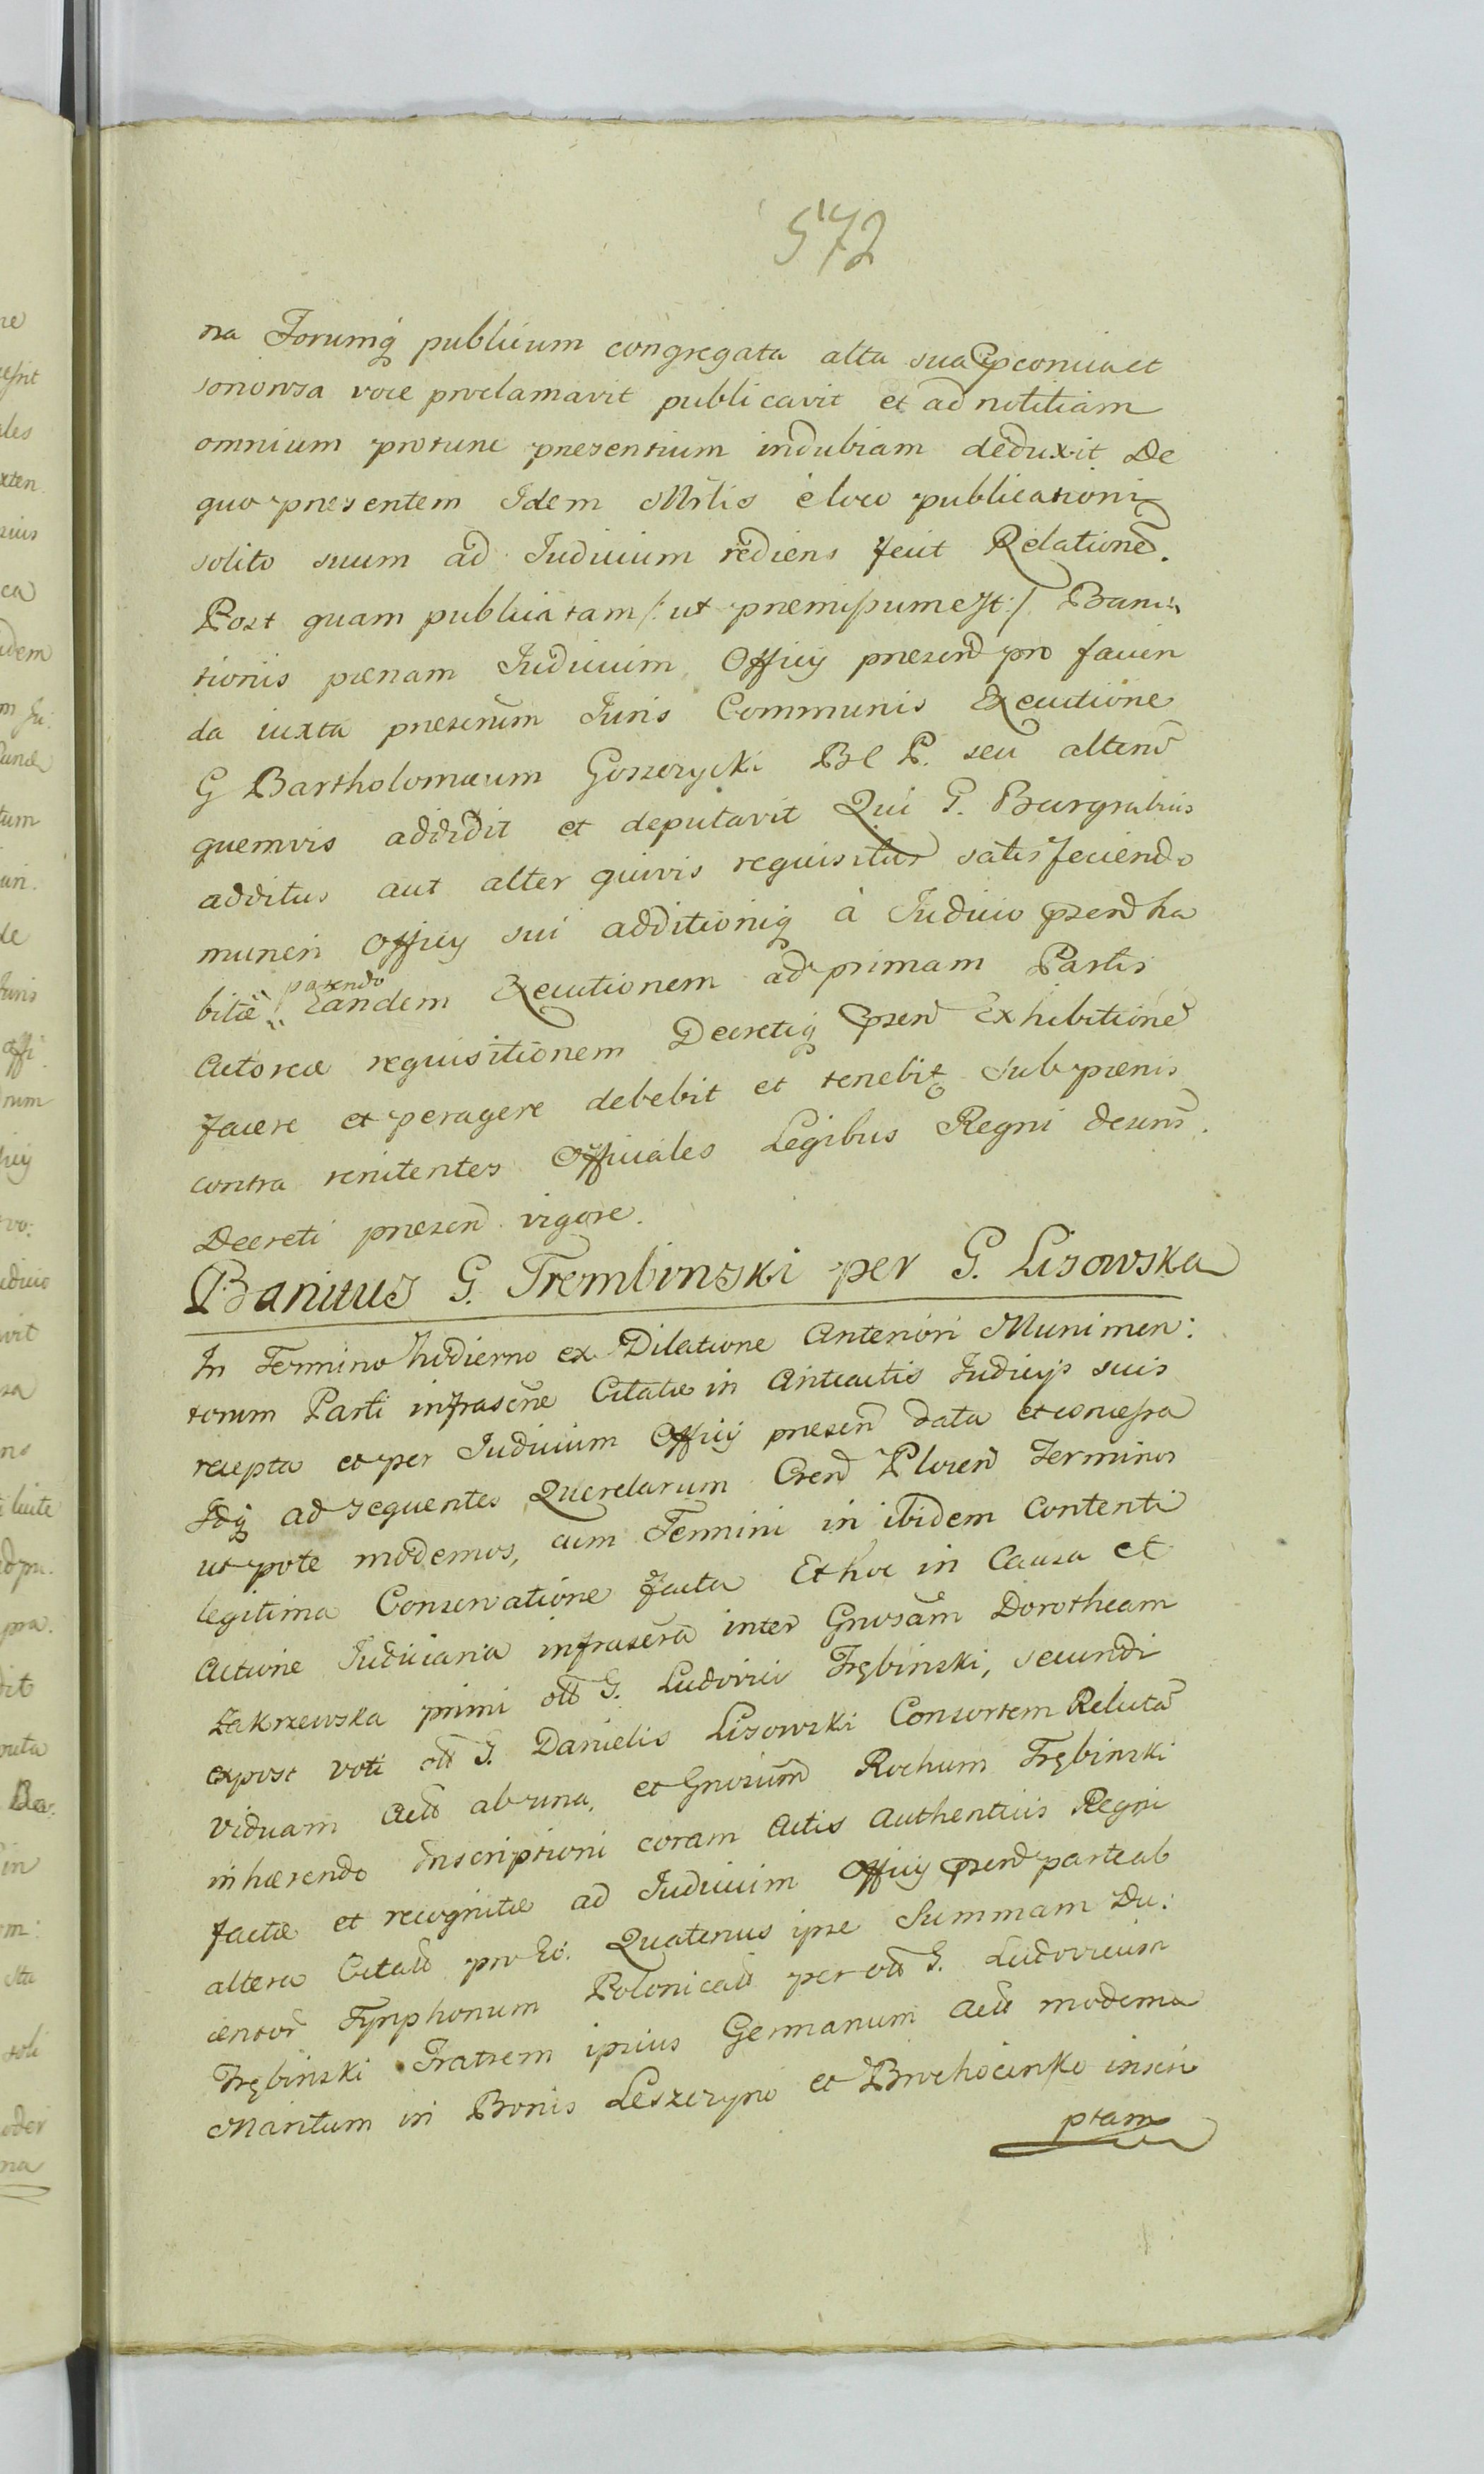 572
na Forumq publicum congregata alta sua et
sonorosa voce proclamavit publicavit et ad notitiam
omnium protunc presentium indubiam deduxit De
quo presentem Idem Mrlis e loco publicationis
solito suum ad Iudicium rediens fecit Relatione.
Post quam publicatam /: ut premissum est :/ Banni
tionis pœnam Iudicium Officij presend pro facien
da iuxta prescrum Iuris Communis Executione
G Bartholomæum Goszczycki B C P. seu alterū
quemvis addidit et deputavit Qui G. Burgrabius
additus aut alter quivis requisitus satisfaciendo
muneri Officij sui additioniq à Iudicio prend ha
bitæ parendo Eandem Executionem ad primam Partis
Actoreæ requisitionem Decretiq prend Exhibitionē
facere et peragere debebit et tenebit sub pœnis
contra renitentes Officiales Legibus Regni descris.
Decreti presend vigore.
Banitus G. Trembinski per G. Lisowska
In Termino hodierno ex Dilatione Anteriori Munimen:
torum Parti infrascrte Citatæ in Anteactis Iudicijs suis
recepta et per Iudicium Officij presend data et concessa
Idq ad sequentes Querelarum Crend Plocen Terminos
utpote modernos, cum Termini in ibidem Contenti
legitima Conservatione facta Et hoc in Causa et
Actione Iudiciaria infrascrta inter Gnrosam Dorotheam
Zakrzewska primi olī G. Ludovici Trębinski, secundi
expost voti olī G. Danielis Lisowski Consortem Relictā
Viduam Act ab una, et Gnrosum Rochum Trębinski
inhærendo Inscriptioni coram Actis Authenticis Regni
factæ et recognitæ ad Iudicium Officij prend parte ab
altera Citatt pro Eo. Quatenus ipse Summam Du:
centor Tynphonum Polonicalt per olt G. Ludovicum
Trębinski Fratrem ipsius Germanum Act moderna
Maritum in Bonis Leszczyno et Brochocinko inscri
ptam